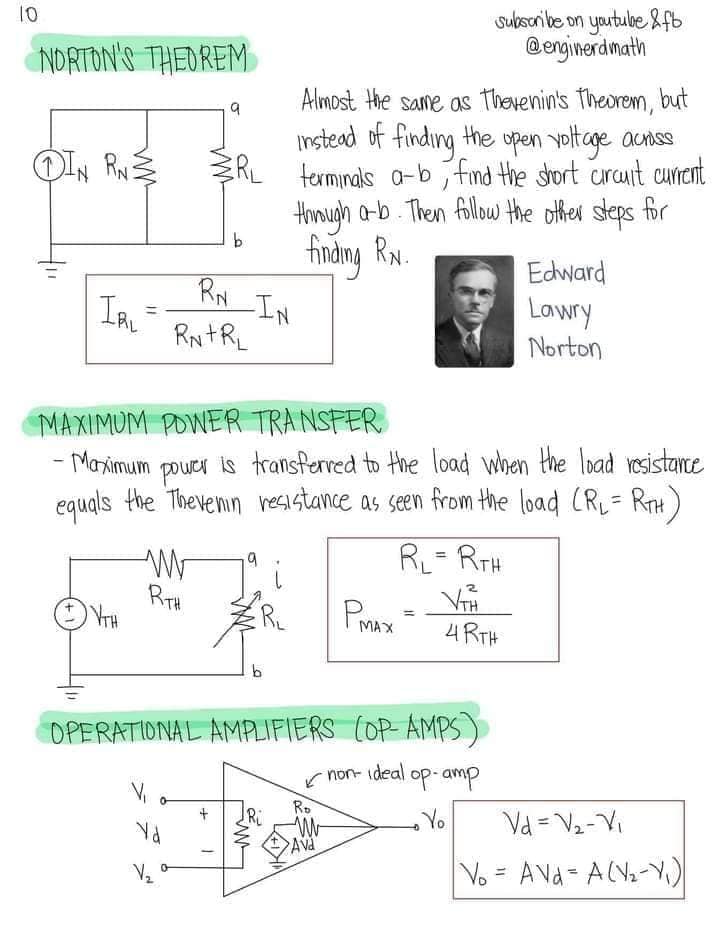 10
subscribe on youtube & fb
@enginerdmath
NORTON'S THEOREM
Almost the same as Thevenin's Theorem, but
instead of finding the open voltage across
terminals a-b, find the short circuit current
through a-b. Then follow the other steps for
finding R_N.
a
I_N R_N R_L
b
I_RL = R_N / (R_N + R_L) I_N
Edward
Lawry
Norton
MAXIMUM POWER TRANSFER
- Maximum power is transferred to the load when the load resistance
equals the Thevenin resistance as seen from the load (R_L = R_TH)
a
i
R_TH
V_TH
R_L
b
R_L = R_TH
P_MAX = V_TH² / 4R_TH
OPERATIONAL AMPLIFIERS (OP-AMPS)
non-ideal op-amp
V_1
+
R_i
R_o
V_o
V_d
-
+
-
AV_d
V_2
V_d = V_2 - V_1
V_o = AV_d = A(V_2 - V_1)